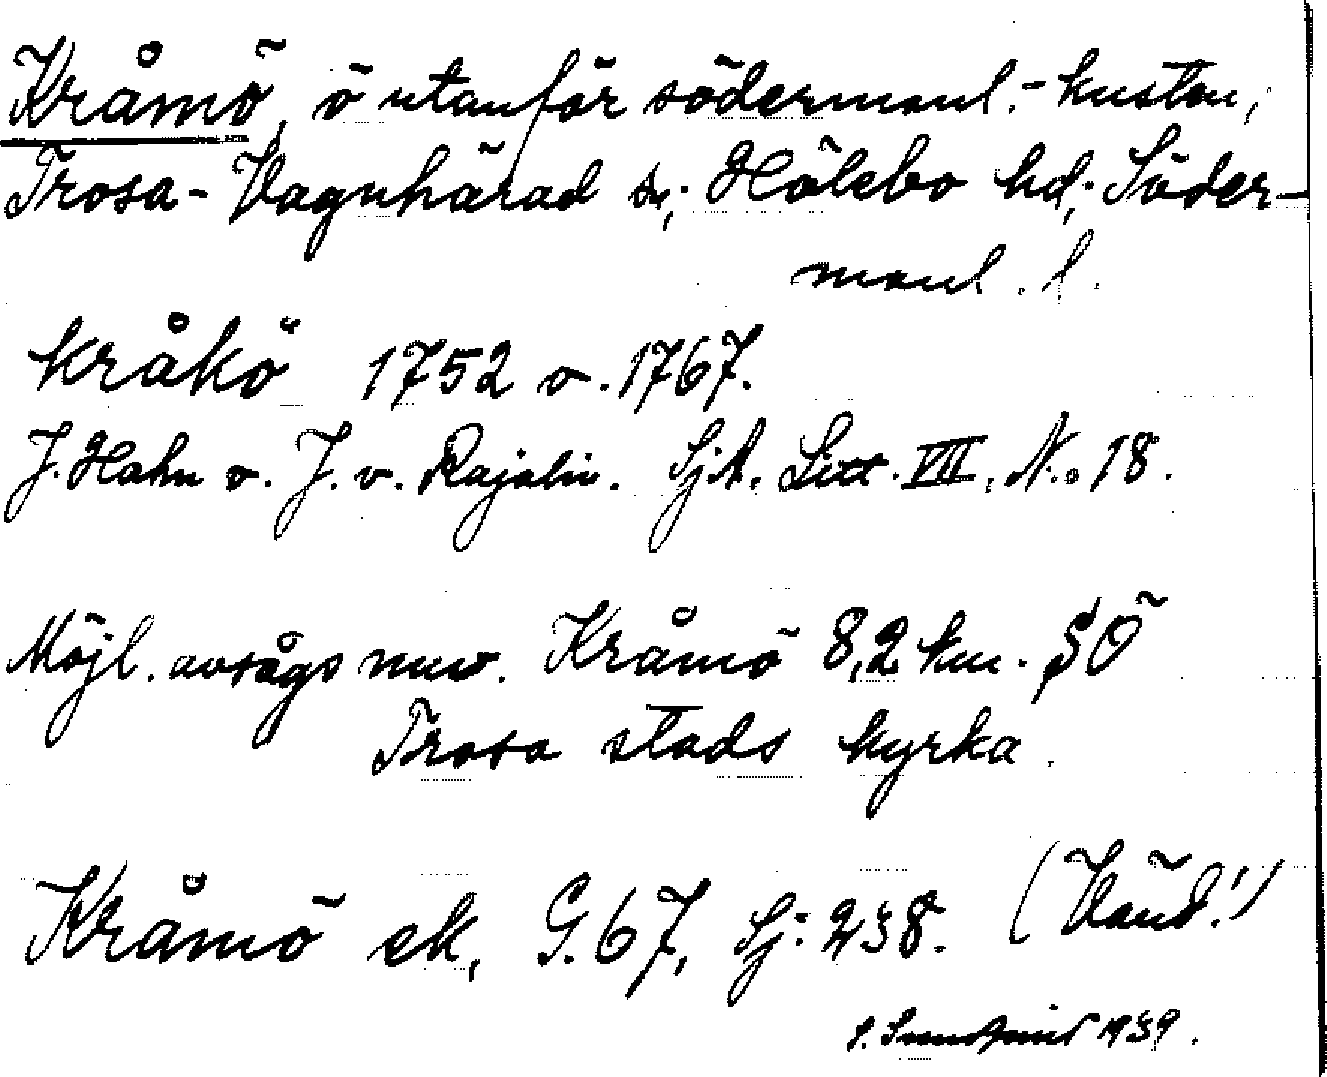 Kråmö, ö utanför södermanl.-kusten,
Trosa-Vagnhärad sn, Hölebo hd, Söder-
manl. l.
Kråkö 1752 o. 1767.
J. Hahn o. J. v. Rajalin. SjA. Litt. VIII, N:o 18.
Möjl. avsågs nuv. Kråmö 8,2 km. SÖ
Trosa stads kyrka.
Kråmö ek, G. 67, Sj: 238. (Vänd!)
1939.